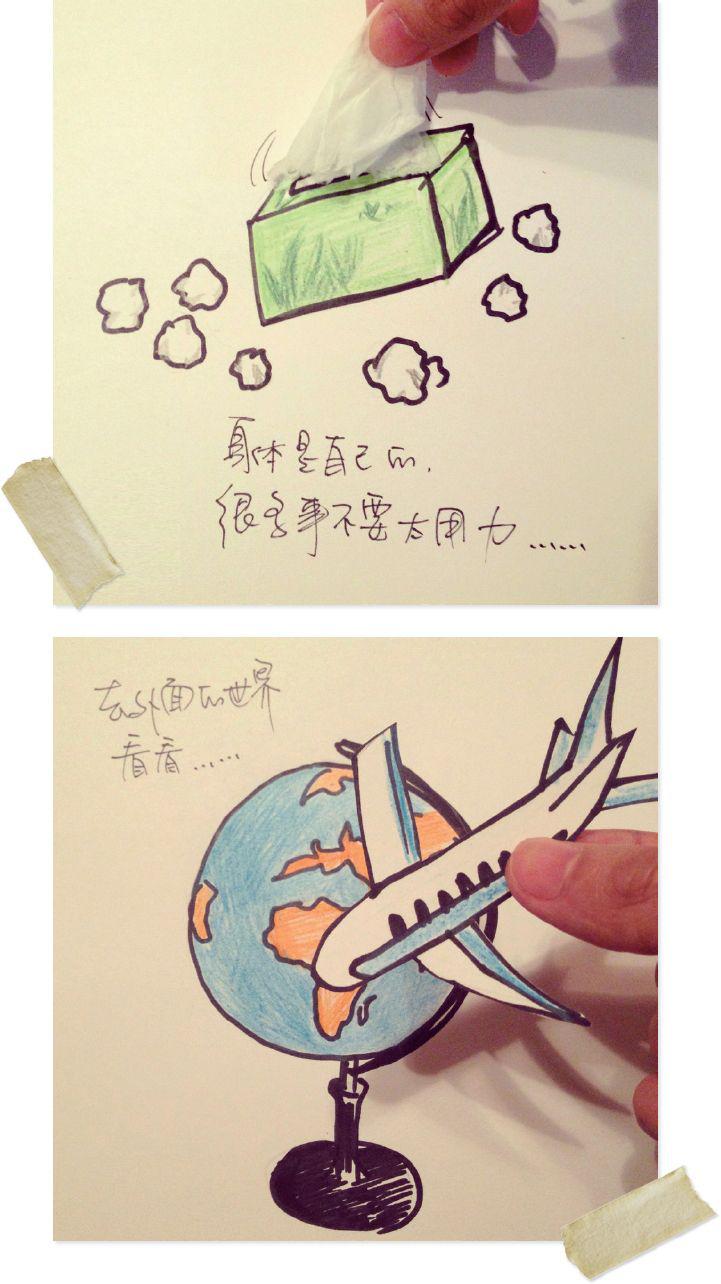 身体是自己的，
很多事不要太用力……
去外面的世界
看看……